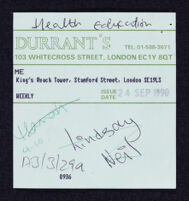 Health Education
DURRANT'S
TEL. 01-588-3671
103 WHITECROSS STREET, LONDON EC1Y 8QT
ME
King's Reach Tower, Stamford Street, London SE1 9LS
WEEKLY
ISSUE DATE 24 SEP 1990
Lindsay
Neil
A3/3/29a
0936